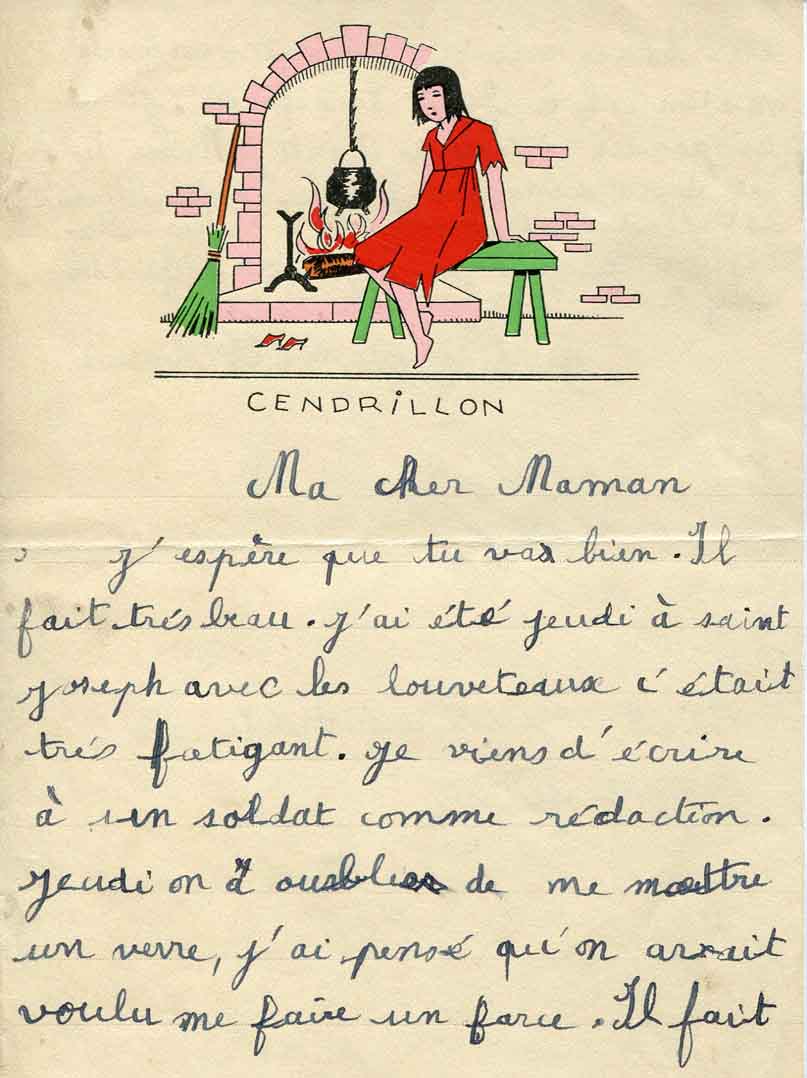 CENDRiLLON
Ma cher Maman
J'espère que tu vas bien. Il
fait trés beau. J'ai été jeudi à saint
joseph avec les louveteaux c'était
trés fatigant. Je viens d'écrire
à un soldat comme rédaction.
Jeudi on à oublier de me mettre
un verre, j'ai pensé qu'on avait
voulu me faire un farce. Il fait